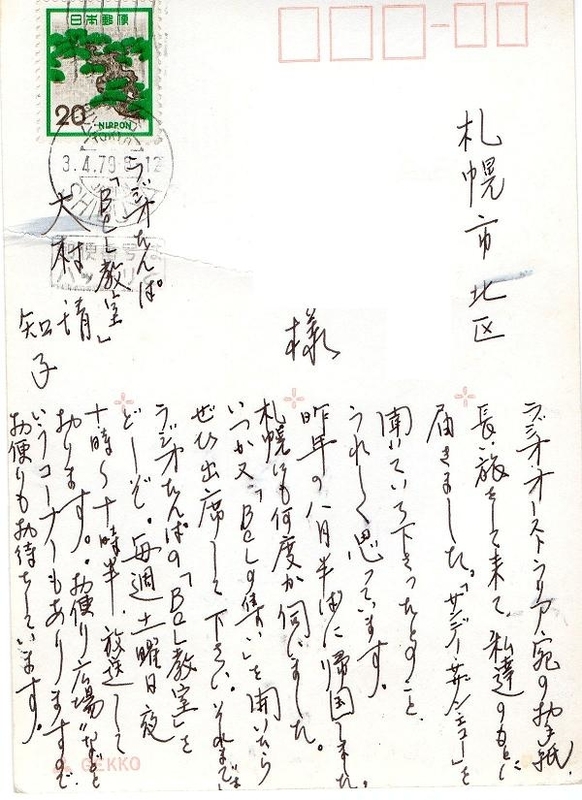 日本郵便
20
NIPPON
3.4.79
札幌市北区
様
ラジオたんぱ
「BCL教室」
大村靖
知子
ラジオオーストラリア宛のお手紙、
長い旅をして来て、私達のもとに
届きました。「サンデーサザンビュー」を
聞いていて下さったとのこと、
うれしく思っています。
昨年の八月半ばに帰国しました。
札幌にも何度か伺いました。
いつか又「BCLの集い」を開いたら
ぜひ出席して下さい。それまでは
ラジオたんぱの「BCL教室」を
どーぞ。毎週土曜日夜
十時〜十時半、放送して
おります。“お便り広場”など
いうコーナーもありますので
お便りもお待ちしています。
GEKKO